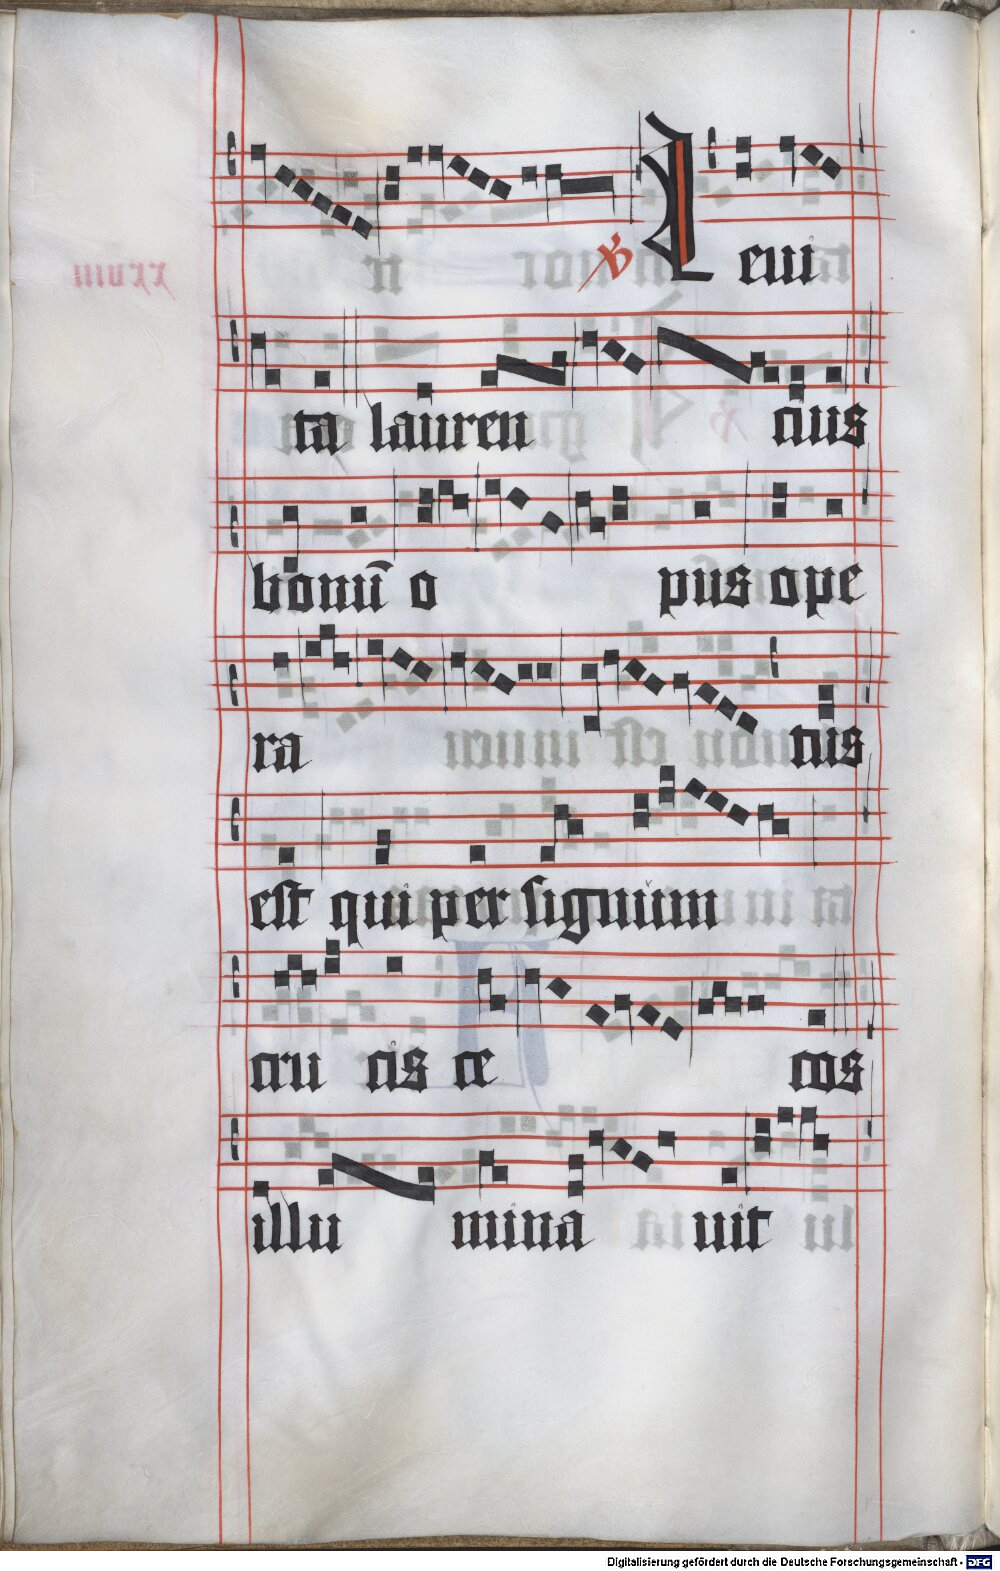 ℣ Leui
ta lauren cius
bonū o pus ope
ra tus
est qui per signum
cru cis ce cos
illu mina uit
Digitalisierung gefördert durch die Deutsche Forschungsgemeinschaft - DFG